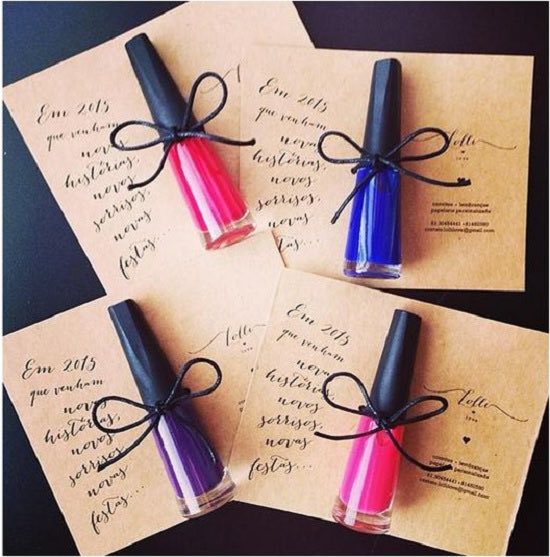 Em 2015
que venham
novas
histórias,
novos
sorrisos,
novas
festas...
Em 2015
que venham
novas
histórias,
novos
sorrisos,
novas
festas...
Lolle
love
convites - lembranças
papelaria personalizada
Em 2015
que venham
novas
histórias,
novos
sorrisos,
novas
festas...
Lolle
Em 2015
que venham
novas
histórias,
novos
sorrisos,
novas
festas...
Lolle
love